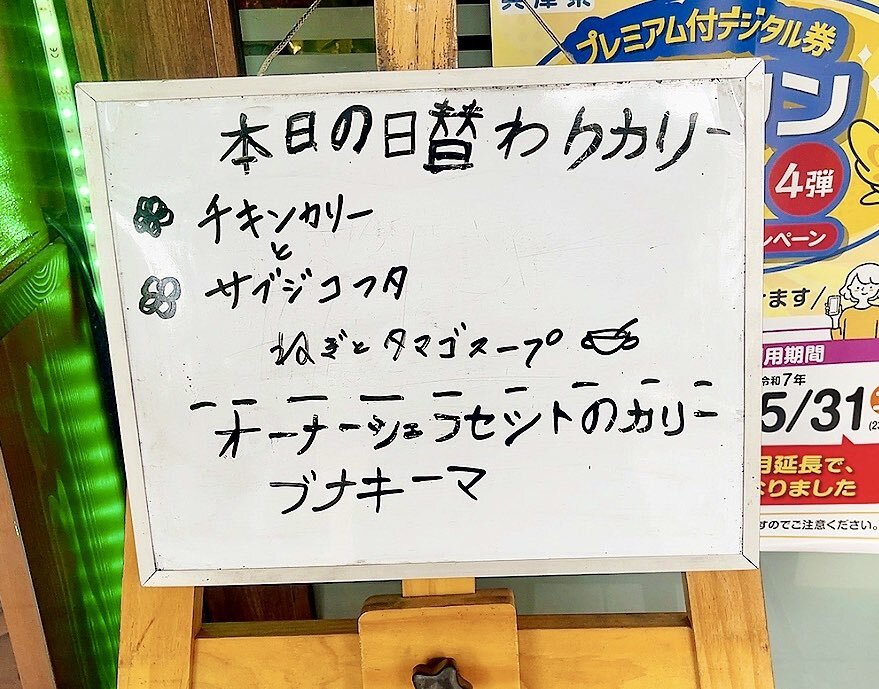 本日の日替わりカリー
チキンカリー
と
サブジコフタ
ねぎとタマゴスープ
オーナーシェフセットのカリー
ブナキーマ
兵庫県
プレミアム付デジタル券
ン
4弾
ンペーン
ます
用期間
令和7年
5/31
月延長で、
なりました
すのでご注意ください。